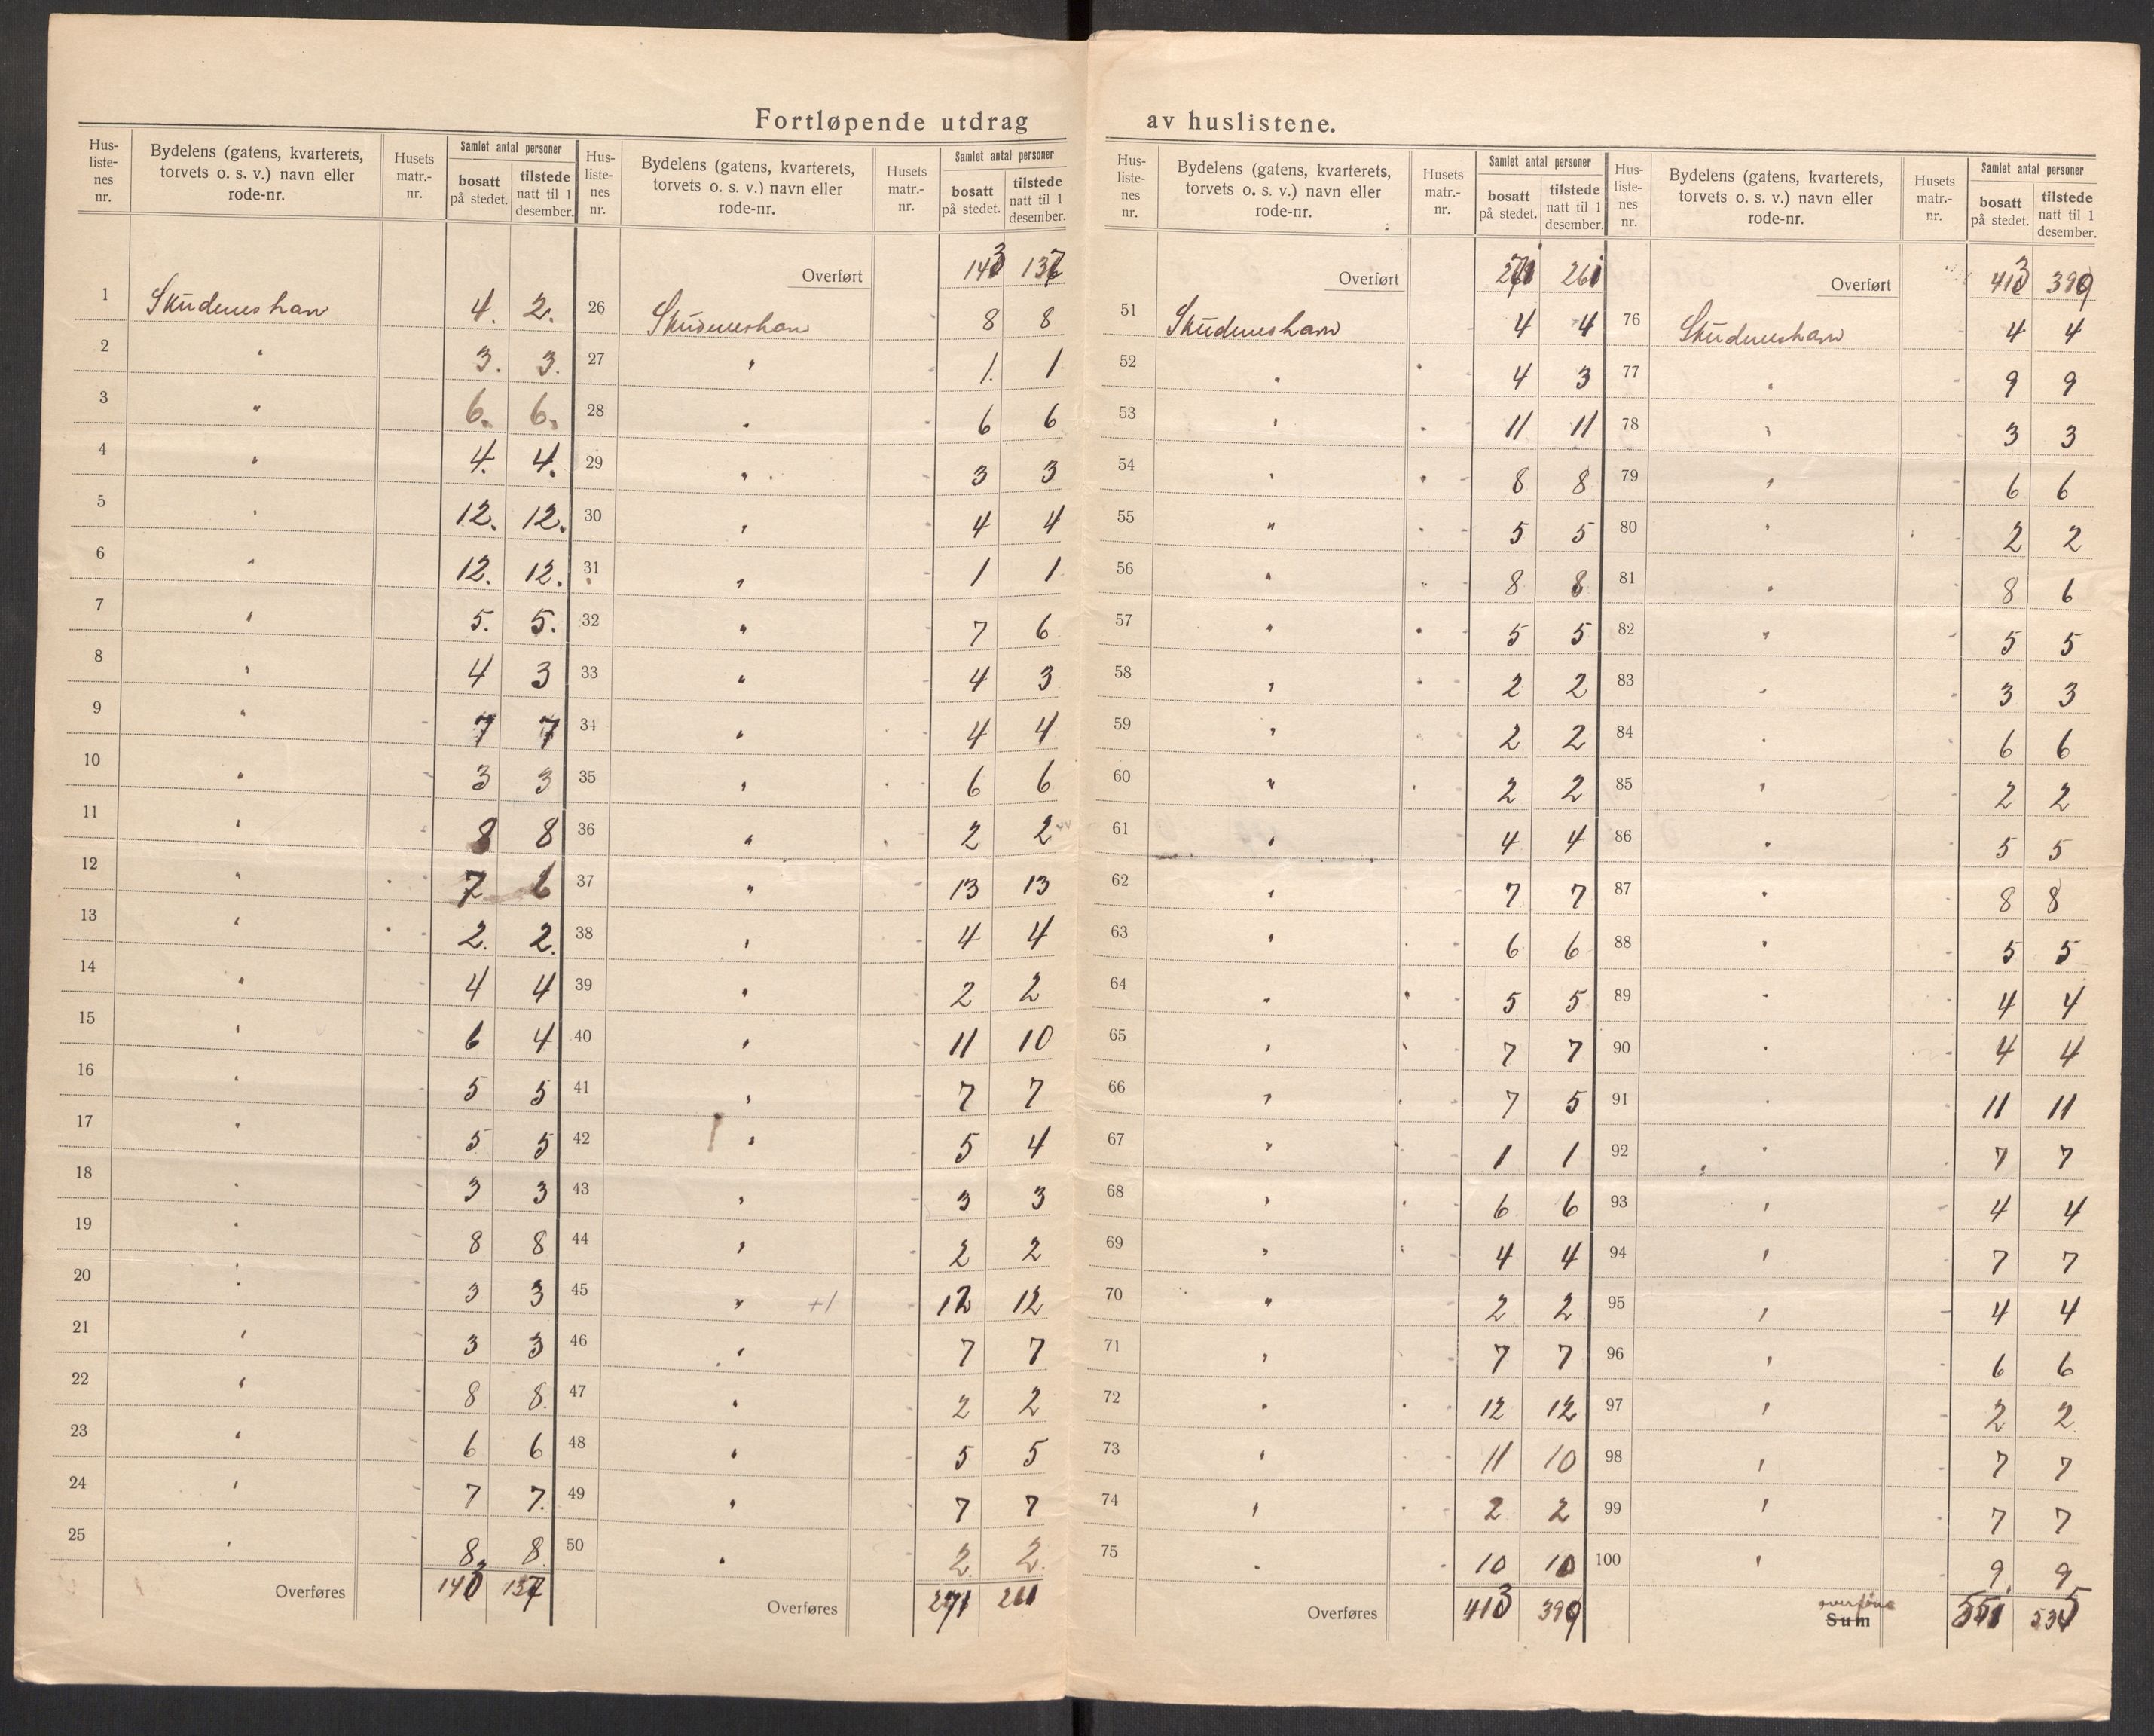 Fortløpende utdrag av huslistene.
Hus-liste-nes nr. | Bydelens (gatens, kvarterets, torvets o. s. v.) navn eller rode-nr. | Husets matr.-nr. | Samlet antal personer | bosatt på stedet. | tilstede natt til 1 desember.
1 Skudeneshavn 4. 2.
2 " 3. 3.
3 " 6. 6.
4 " 4. 4.
5 " 12. 12.
6 " 12. 12.
7 " 5. 5.
8 " 4 3
9 " 7 7
10 " 3 3
11 " 8 8
12 " 7 6
13 " 2. 2.
14 " 4 4
15 " 6 4
16 " 5 5
17 " 5 5
18 " 3 3
19 " 8 8
20 " 3 3
21 " 3 3
22 " 8 8.
23 " 6 6
24 " 7 7.
25 " 8. 8.
Overføres 143 137
Hus-liste-nes nr. | Bydelens (gatens, kvarterets, torvets o. s. v.) navn eller rode-nr. | Husets matr.-nr. | Samlet antal personer | bosatt på stedet. | tilstede natt til 1 desember.
Overført 143 137
26 Skudeneshavn 8 8
27 " 1. 1
28 " 6 6
29 " 3 3
30 " 4 4
31 " 1 1
32 " 7 6
33 " 4 3
34 " 4 4
35 " 6 6
36 " 2 2
37 " 13 13
38 " 4 4
39 " 2 2
40 " 11 10
41 " 7 7
42 " 5 4
43 " 3 3
44 " 2 2
45 " +1 12 12
46 " 7 7
47 " 2 2
48 " 5 5
49 " 7 7
50 " 2. 2.
Overføres 271 261
Hus-liste-nes nr. | Bydelens (gatens, kvarterets, torvets o. s. v.) navn eller rode-nr. | Husets matr.-nr. | Samlet antal personer | bosatt på stedet. | tilstede natt til 1 desember.
Overført 271 261
51 Skudeneshavn 4 4
52 " 4 3
53 " 11 11
54 " 8 8
55 " 5 5
56 " 8 8
57 " 5 5
58 " 2 2
59 " 2 2
60 " 2 2
61 " 4 4
62 " 7 7
63 " 6 6
64 " 5 5
65 " 7 7
66 " 7 5
67 " 1 1
68 " 6 6
69 " 4 4
70 " 2 2
71 " 7 7
72 " 12 12
73 " 11 10
74 " 2 2
75 " 10 10
Overføres 413 399
Hus-liste-nes nr. | Bydelens (gatens, kvarterets, torvets o. s. v.) navn eller rode-nr. | Husets matr.-nr. | Samlet antal personer | bosatt på stedet. | tilstede natt til 1 desember.
Overført 413 399
76 Skudeneshavn 4 4
77 " 9 9
78 " 3 3
79 " 6 6
80 " 2 2
81 " 8 6
82 " 5 5
83 " 3 3
84 " 6 6
85 " 2 2
86 " 5 5
87 " 8 8
88 " 5 5
89 " 4 4
90 " 4 4
91 " 11 11
92 " 7 7
93 " 4 4
94 " 7 7
95 " 4 4
96 " 6 6
97 " 2 2
98 " 7 7
99 " 7 7
100 " 9. 9
overføres
Sum 551 535